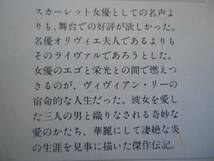 スカーレット女優としての名声よ
りも、舞台での好評が欲しかった。
名優オリヴィエ夫人であるよりも
そのライヴァルであろうとした。
女優のエゴと栄光との間で燃えつ
きるのが、ヴィヴィアン・リーの
宿命的な人生だった。彼女を愛し
た三人の男と織りなされる奇妙な
愛のかたち、華麗にして凄絶な炎
の生涯を見事に描いた傑作伝記。